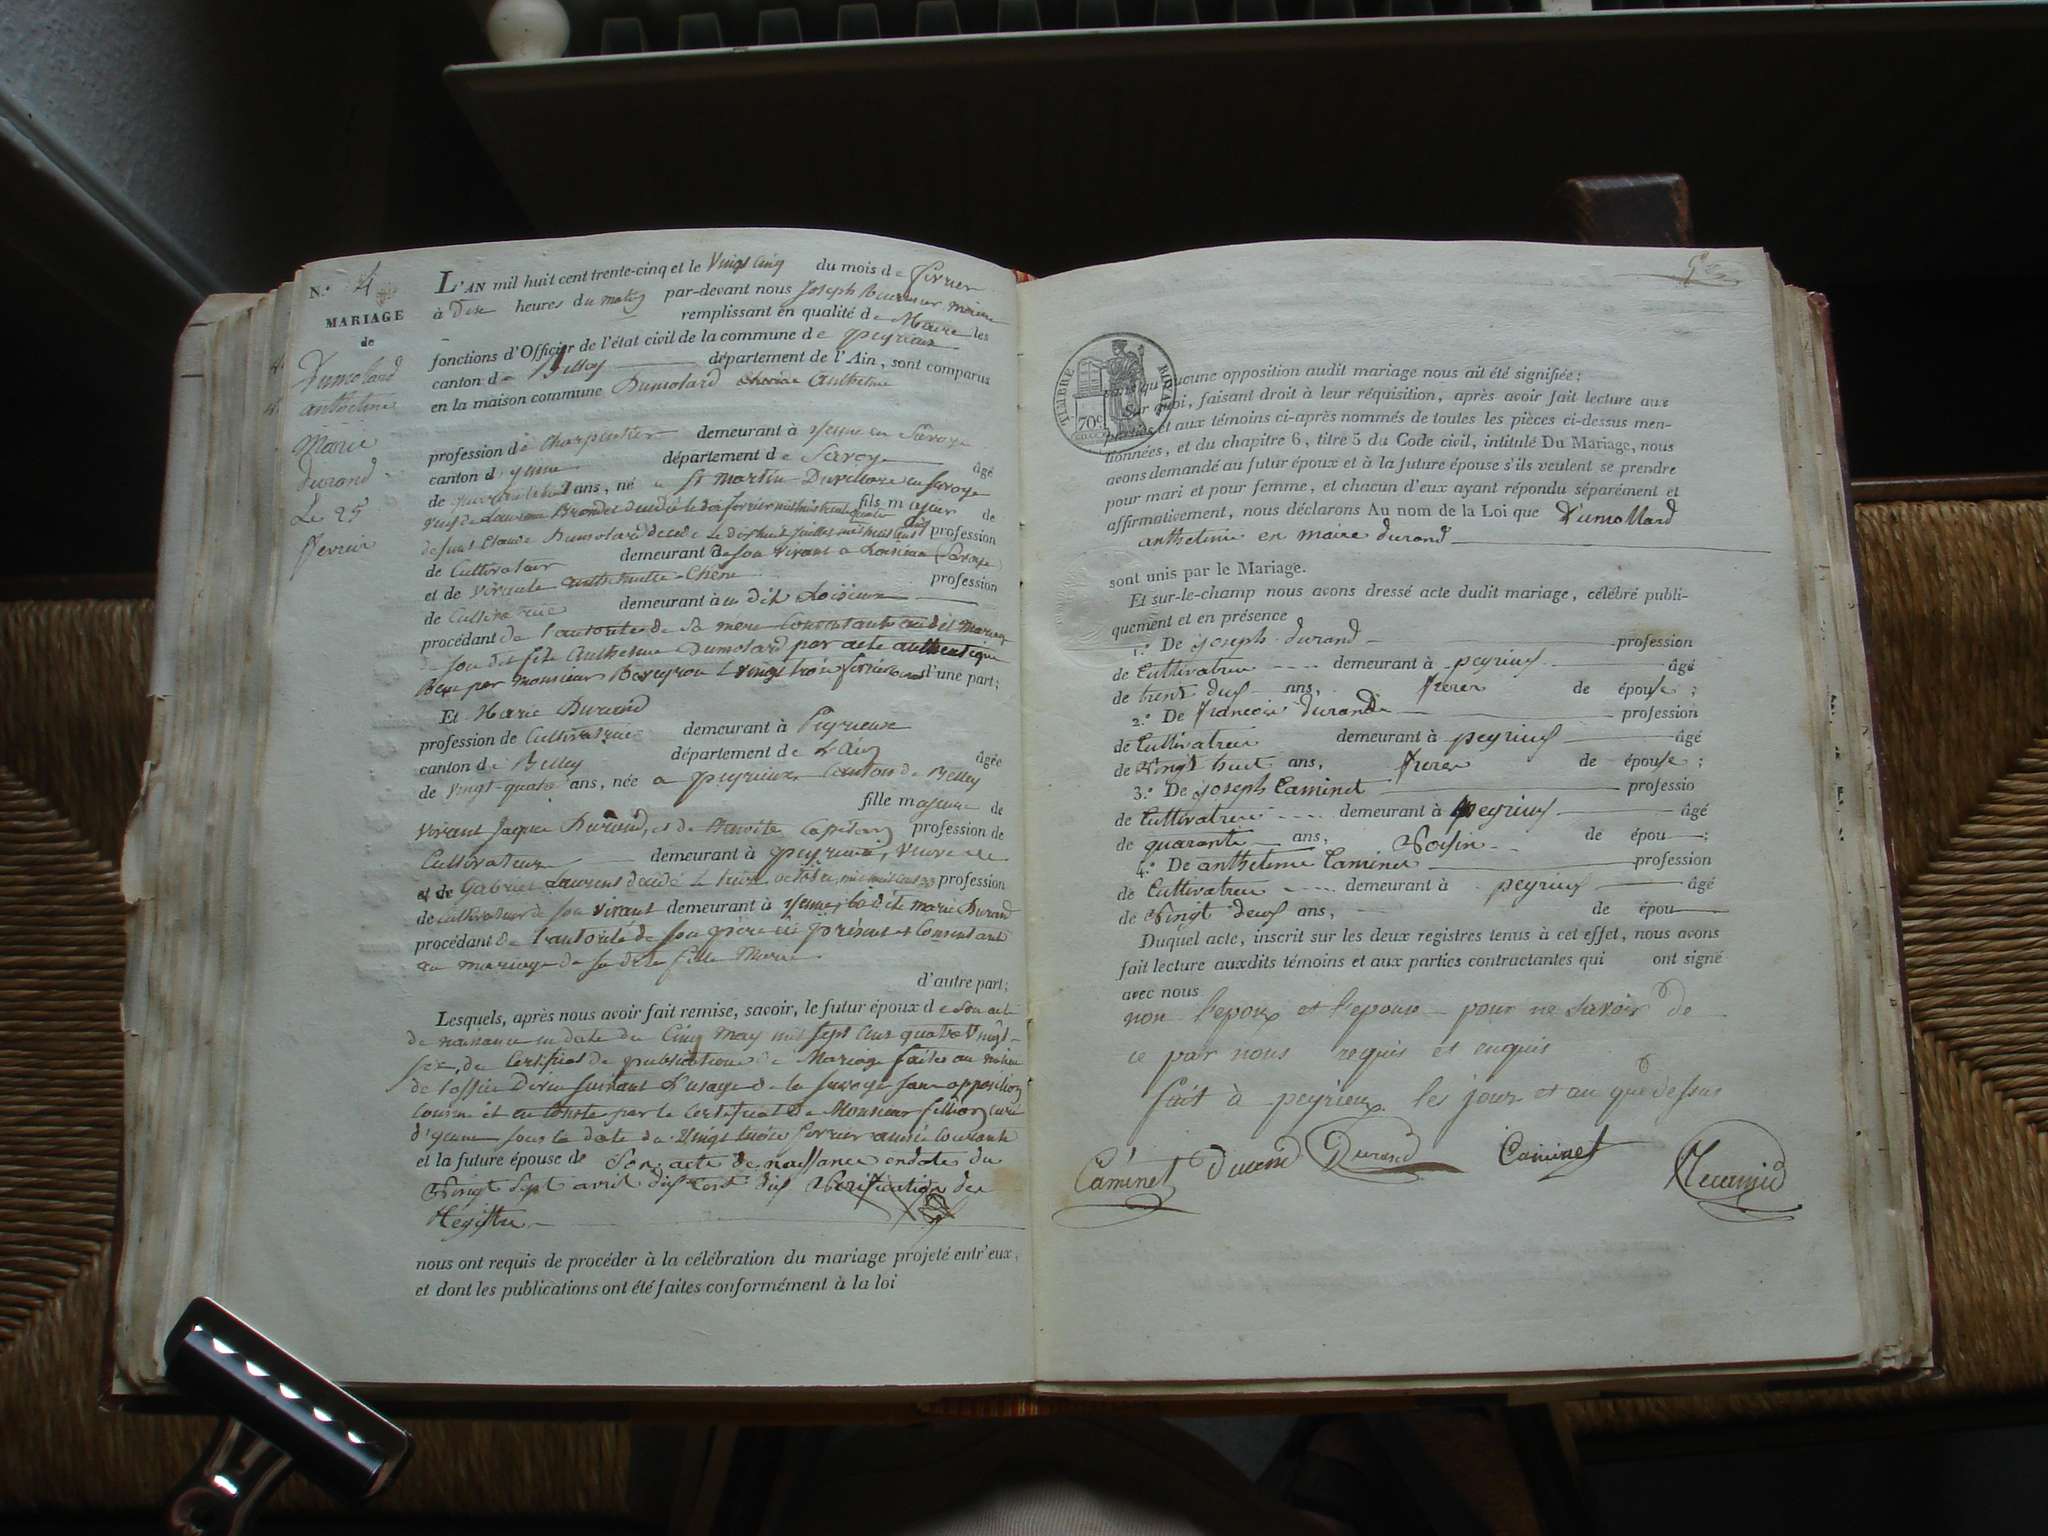 N.° 4
MARIAGE
de
Dumolard
anthelme
Marie
durand
Le 25
fevrier
L'AN mil huit cent trente-cinq et le Vingt cinq du mois de fevrier
à Dix heures du matin par-devant nous Joseph maire
remplissant en qualité de Maire les
fonctions d'Officier de l'état civil de la commune de peyrieux
canton de Belley département de l'Ain, sont comparus
en la maison commune Dumolard anthelme
profession de Charpentier demeurant à yenne en Savoye
canton d'yenne département de Savoye âgé
de ans, né a St martin Duvillard en Savoye
fils majeur de
defunt Claude Dumolard decedé le dixhuit juillet mil huit cent profession
de Cultivateur demeurant de son vivant a Loisieux Savoye
et de vivante profession
de Cultivatrice demeurant au dit Loisieux
procédant de l'autorité de sa mere Consentante au dit Mariage
de son dit fils Anthelme Dumolard par acte authentique
Reçu par monsieur le vingt trois fevrier d'une part;
Et Marie Durand
profession de Cultivatrice demeurant à Peyrieux
canton de Belley département de L'Ain âgée
de Vingt-quatre ans, née a peyrieux Canton de Belley
fille majeure de
vivant Jaque Durand, et de profession de
Cultivateur demeurant à peyrieux, veuve de
et de Gabriel Laurent decedé le octobre mil huit cent 33 profession
de cultivateur de son vivant demeurant à yenne, la dite marie Durand
procédant de l'autorité de son père ici présent et Consentant
au mariage de sa dite fille Marie.
d'autre part;
Lesquels, après nous avoir fait remise, savoir, le futur époux de son acte
de naissance en date du Cinq may mil sept cent quatre Vingt-
six, du Certificat de publications de Mariage faites au milieu
de l'office Divin suivant L'usage de la Savoye sans opposition
Comme il en Conste par le Certificat de Monsieur curé
d'yenne sous la date du Vingt trois fevrier année Courante
et la future épouse de Son acte de naissance endate du
Vingt sept avril dix huit cent dix Verification des
Registre
nous ont requis de procéder à la célébration du mariage projeté entr'eux,
et dont les publications ont été faites conformément à la loi
TIMBRE ROYAL
70c
sans qu'aucune opposition audit mariage nous ait été signifiée;
Sur quoi, faisant droit à leur réquisition, après avoir fait lecture aux
parties et aux témoins ci-après nommés de toutes les pièces ci-dessus men-
tionnées, et du chapitre 6, titre 5 du Code civil, intitulé Du Mariage, nous
avons demandé au futur époux et à la future épouse s'ils veulent se prendre
pour mari et pour femme, et chacun d'eux ayant répondu séparément et
affirmativement, nous déclarons Au nom de la Loi que Dumollard
anthelme en maire durand
sont unis par le Mariage.
Et sur-le-champ nous avons dressé acte dudit mariage, célébré publi-
quement et en présence
1.° De Joseph durand profession
de Cultivateur demeurant à peyrieux âgé
de trent deux ans, frerer de épouse;
2.° De françois durand profession
de Cultivateur demeurant à peyrieux âgé
de Vingt huit ans, frerer de épouse;
3.° De Joseph Caminet professio
de Cultivateur demeurant à peyrieux âgé
de quarante ans, Voisin de épou ;
4.° De anthelme Caminet profession
de Cultivateur demeurant à peyrieux âgé
de Vingt deux ans, de épou
Duquel acte, inscrit sur les deux registres tenus à cet effet, nous avons
fait lecture auxdits témoins et aux parties contractantes qui ont signé
avec nous
non l'epoux et l'epouse pour ne savoir de
ce par nous requis et enquis
fait à peyrieux les jour et an que dessus
Caminet durand Durand Caminet